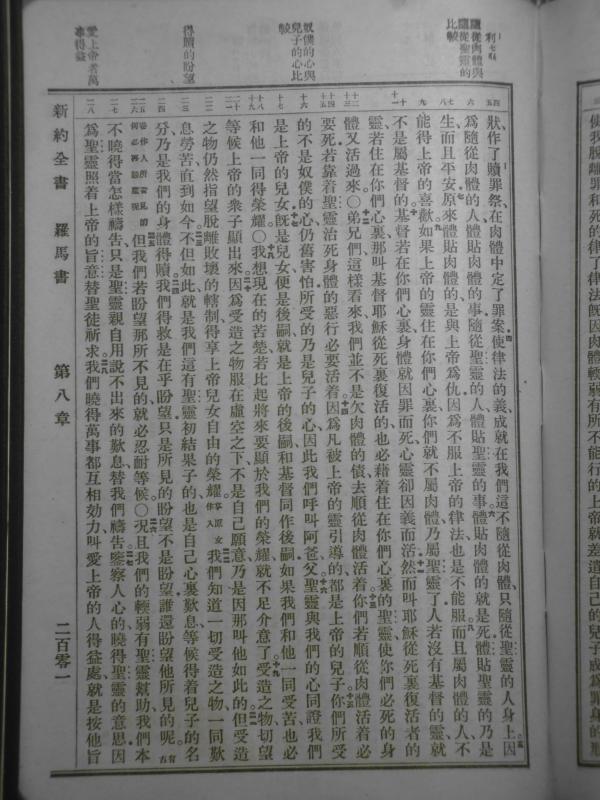 使我脫離罪和死的律了律法旣因肉體輭弱有所不能行的上帝就差遣自己的兒子成爲罪身的形
狀作了贖罪祭在肉體中定了罪案使律法的義成就在我們這不隨從肉體只隨從聖靈的人身上因
爲隨從肉體的人體貼肉體的事隨從聖靈的人體貼聖靈的事體貼肉體的就是死體貼聖靈的乃是
生而且平安原來體貼肉體的是與上帝爲仇因爲不服上帝的律法也是不能服而且屬肉體的人不
能得上帝的喜歡如果上帝的靈住在你們心裏你們就不屬肉體乃屬聖靈了人若沒有基督的靈就
不是屬基督的基督若在你們心裏身體就因罪而死心靈卻因義而活然而叫耶穌從死裏復活者的
靈若住在你們心裏那叫基督耶穌從死裏復活的也必藉着住在你們心裏的聖靈使你們必死的身
體又活過來〇弟兄們這樣看來我們並不是欠肉體的債去順從肉體活着你們若順從肉體活着必
要死若靠着聖靈治死身體的惡行必要活着因爲凡被上帝的靈引導的都是上帝的兒子你們所受
的不是奴僕的心仍舊害怕所受的乃是兒子的心因此我們呼叫阿爸父聖靈與我們的心同證我們
是上帝的兒女旣是兒女便是後嗣就是上帝的後嗣和基督同作後嗣如果我們和他一同受苦也必
和他一同得榮耀〇我想現在的苦楚若比起將來要顯於我們的榮耀就不足介意了受造之物切望
等候上帝的衆子顯出來因爲受造之物服在虛空之下不是自己願意乃是因那叫他如此的但受造
之物仍然指望脫離敗壞的轄制得享上帝兒女自由的榮耀我們知道一切受造之物一同歎
息勞苦直到如今不但如此就是我們這有聖靈初結果子的也是自己心裏歎息等候得着兒子的名
分乃是我們的身體得贖我們得救是在乎盼望只是所見的盼望不是盼望誰還盼望他所見的呢
但我們若盼望那所不見的就必忍耐等候〇況且我們的輭弱有聖靈幫助我們本
不曉得當怎樣禱告只是聖靈親自用說不出來的歎息替我們禱告鑒察人心的曉得聖靈的意思因
爲聖靈照着上帝的旨意替聖徒祈求我們曉得萬事都互相効力叫愛上帝的人得益處就是按他旨
隨從肉體與
隨從聖靈的
比較
奴僕的心與
兒子的心比
較
得贖的盼望
愛上帝者萬
事得益
新約全書　羅馬書　第八章　二百零一